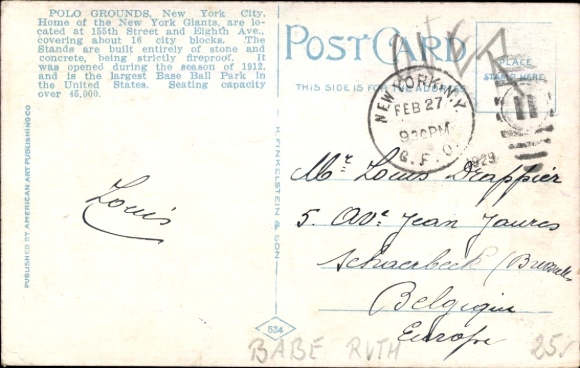 POLO GROUNDS, New York City,
Home of the New York Giants, are lo-
cated at 155th Street and Eighth Ave.,
covering about 16 city blocks. The
Stands are built entirely of stone and
concrete, being strictly fireproof. It
was opened during the season of 1912,
and is the largest Base Ball Park in
the United States. Seating capacity
over 45,000.
PUBLISHED BY AMERICAN ART PUBLISHING CO
H. FINKELSTEIN & SON
POST CARD
THIS SIDE IS FOR THE ADDRESS
PLACE
STAMP HERE
NEW YORK, N.Y.
FEB 27
930PM
G.P.O.
1929
11
Louis
Mr. Louis Drappier
5. Ave Jean Jaures
Schaerbeek (Bruxelles
Belgique
Europe
534
BABE RUTH
25/